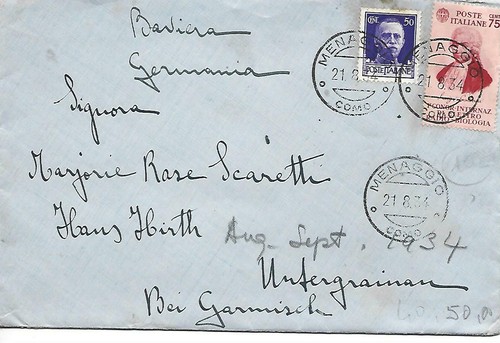 Baviera
Germania
CENT. 50
POSTE ITALIANE
POSTE CENT
ITALIANE 75
1° CONGR. INTERNAZ.
DI ELETTRO
BIOLOGIA
MENAGGIO
21 8.34
COMO
MENAGGIO
21 8.34
COMO
Signora
Marjorie Rose Scaretti
MENAGGIO
21 8.34
COMO
Hans Hirth
Aug-Sept. 1934
Untergrainau
Bei Garmisch
50.0